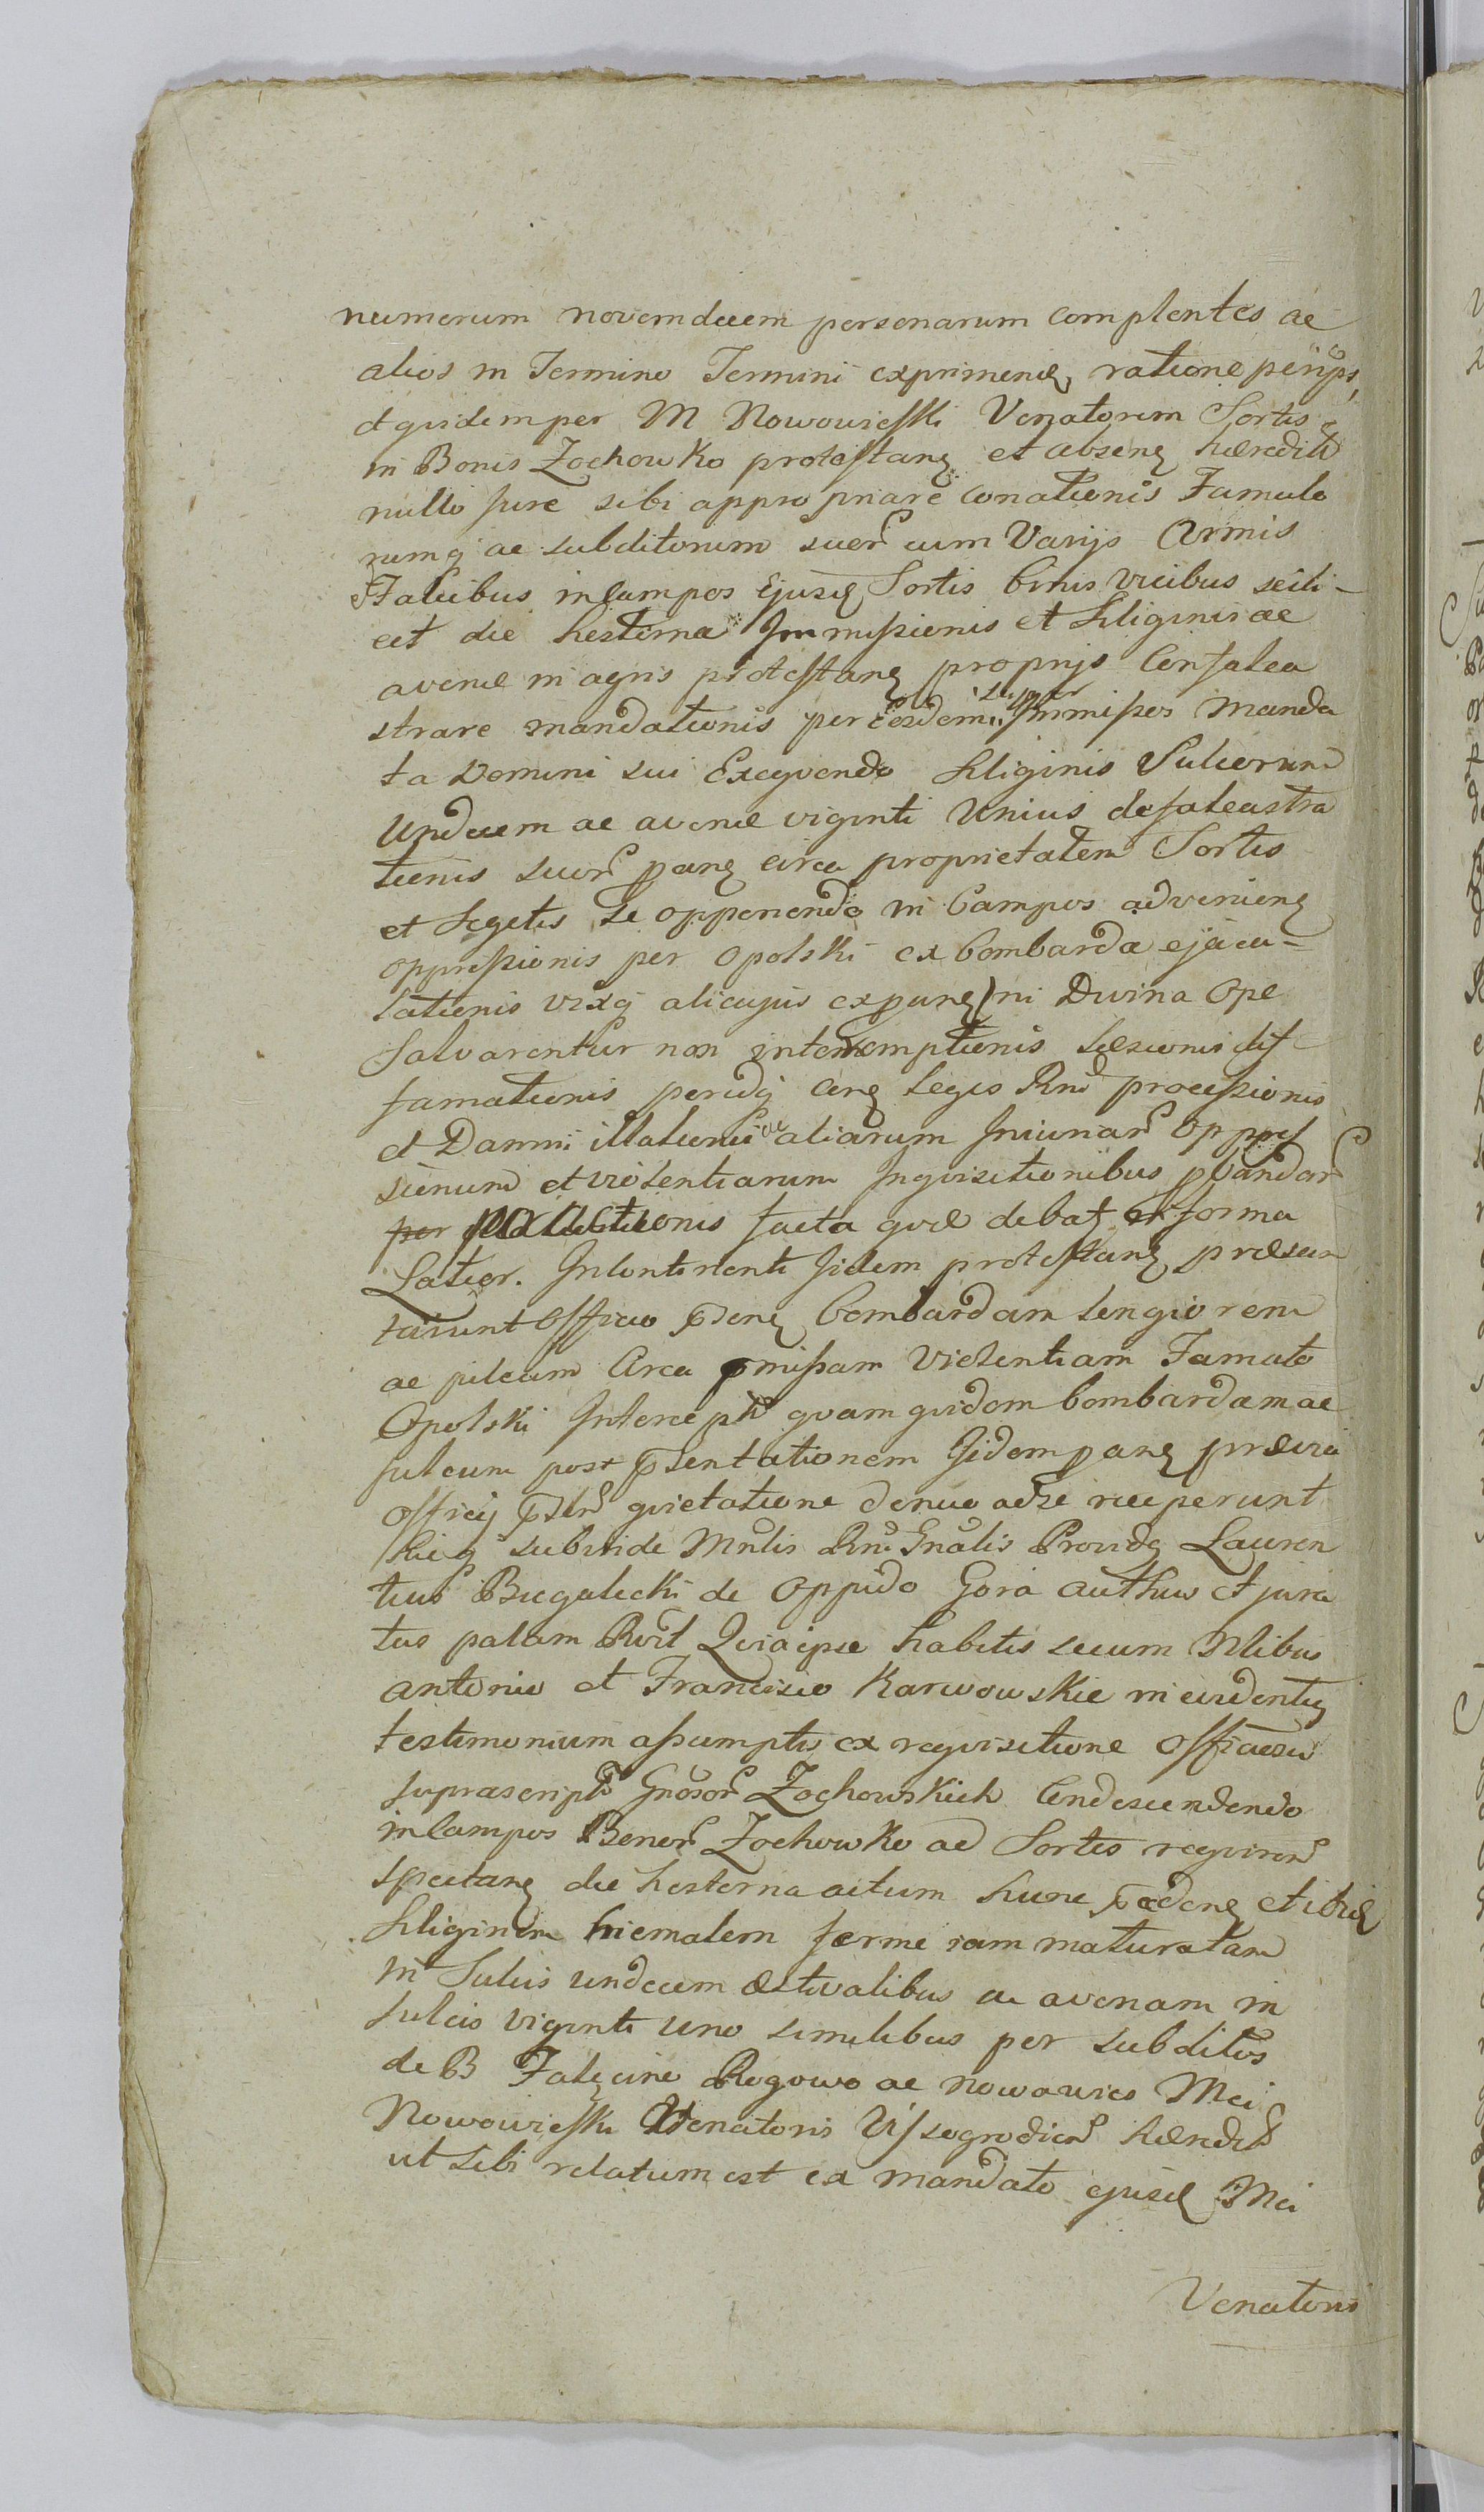 numerum novemdecem personarum complentes ac
alios in Termino Termini exprimend, ratione
et quidem per M Nowowieyski Venatorem Sortis
in Bonis Zochowko protestang et absens hæredit
nullo jure sibi appropriare conationis Famulo
rumq ac subditorum suor cum Varijs Armis
Falcibus in Campos Ejusd Sortis binis vicibus scili-
cet die hesterna Immissionis et Siliginis ac
avenæ in agris protestang proprijs Confalca
strare mandationis per Eosdem super Immissos manda
ta Domini sui Exequendo Siliginis Sulcorum
Undecem ac avenæ viginti Unius defalcastra
tionis suor pang circa proprietatem Sortis
et Segetis se opponendo in Campos advenieng
oppressionis per Opolski ex bombarda ejacu-
lationis vixq alicujus ex pang ni Divina Ope
Salvarentur non interemptionis Læsionis dif
famationis Legis Rni processionis
et Damni illationis ac aliarum Iniuriar Oppres
sionum et violentiarum Inquisitionibus pbandar
per facta quæ debat in forma
Latior. Incontinenti Iidem protestang præsen
tarunt Officio pseng bombardam longiorem
ac pileum Circa pmissam Violentiam Famato
Opolski Intercept quam quidem bombardam ac
pileum post psentationem Iidem pang prævia
officij pstis quietatione denuo ad se receperunt
Hicq subinde Mnlis Rni Gnalis Providq Lauren
tius Biegalecki de Oppido Gora authus et jura
tus palam Rvit Quia ipse habitis secum Nlibus
antonio et Francisco Karwowskie in evidentig
testimonium assumptis ex requisitione Officiosa
suprascript Gnosor Zochowskich Condescendendo
in Campos Bonor Zochowko ad Sortis requiren
spectang die hesterna actum hunc pcdeng et ibid
Siliginem hiemalem ferme iam maturatam
in Sulcis undecem æstivalibus ac avenam in
sulcis viginti uno similibus per subditos
de B Falęcino Rogowo ac nowawies Mci
Nowowieyski Venatoris Vissogrodien hæredis
ut sibi relatum est ex mandato ejusd Mci
Venatoris